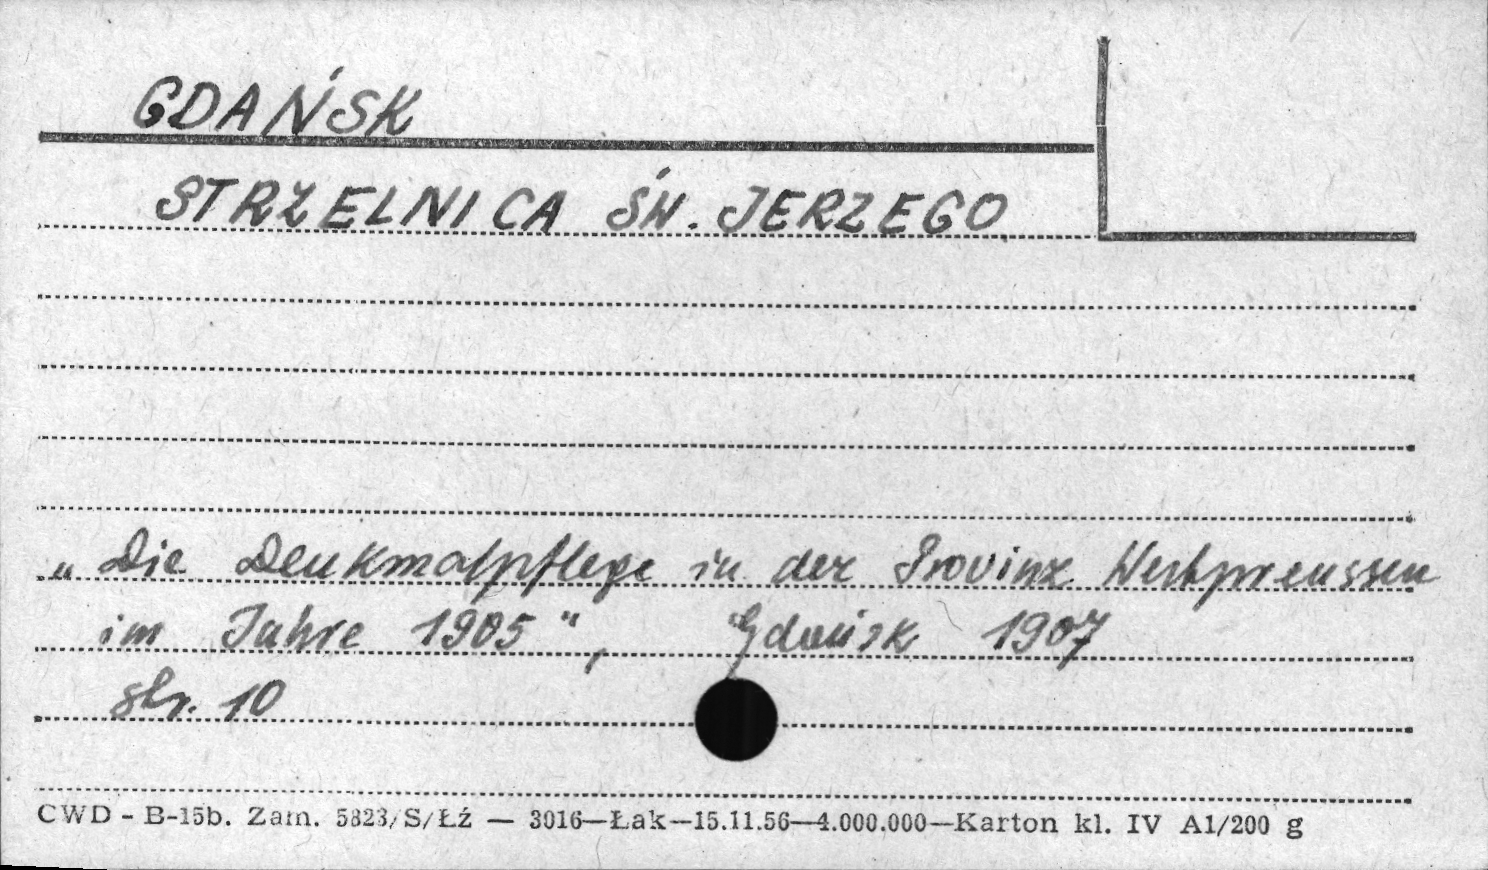 GDAŃSK
STRZELNICA ŚW. JERZEGO
„Die Denkmalpflege in der Provinz Westpreussen
im Jahre 1905", Gdańsk 1907
str. 10
CWD - B-15b. Zam. 5823/S/Łź — 3016—Łak—15.11.56—4.000.000—Karton kl. IV A1/200 g